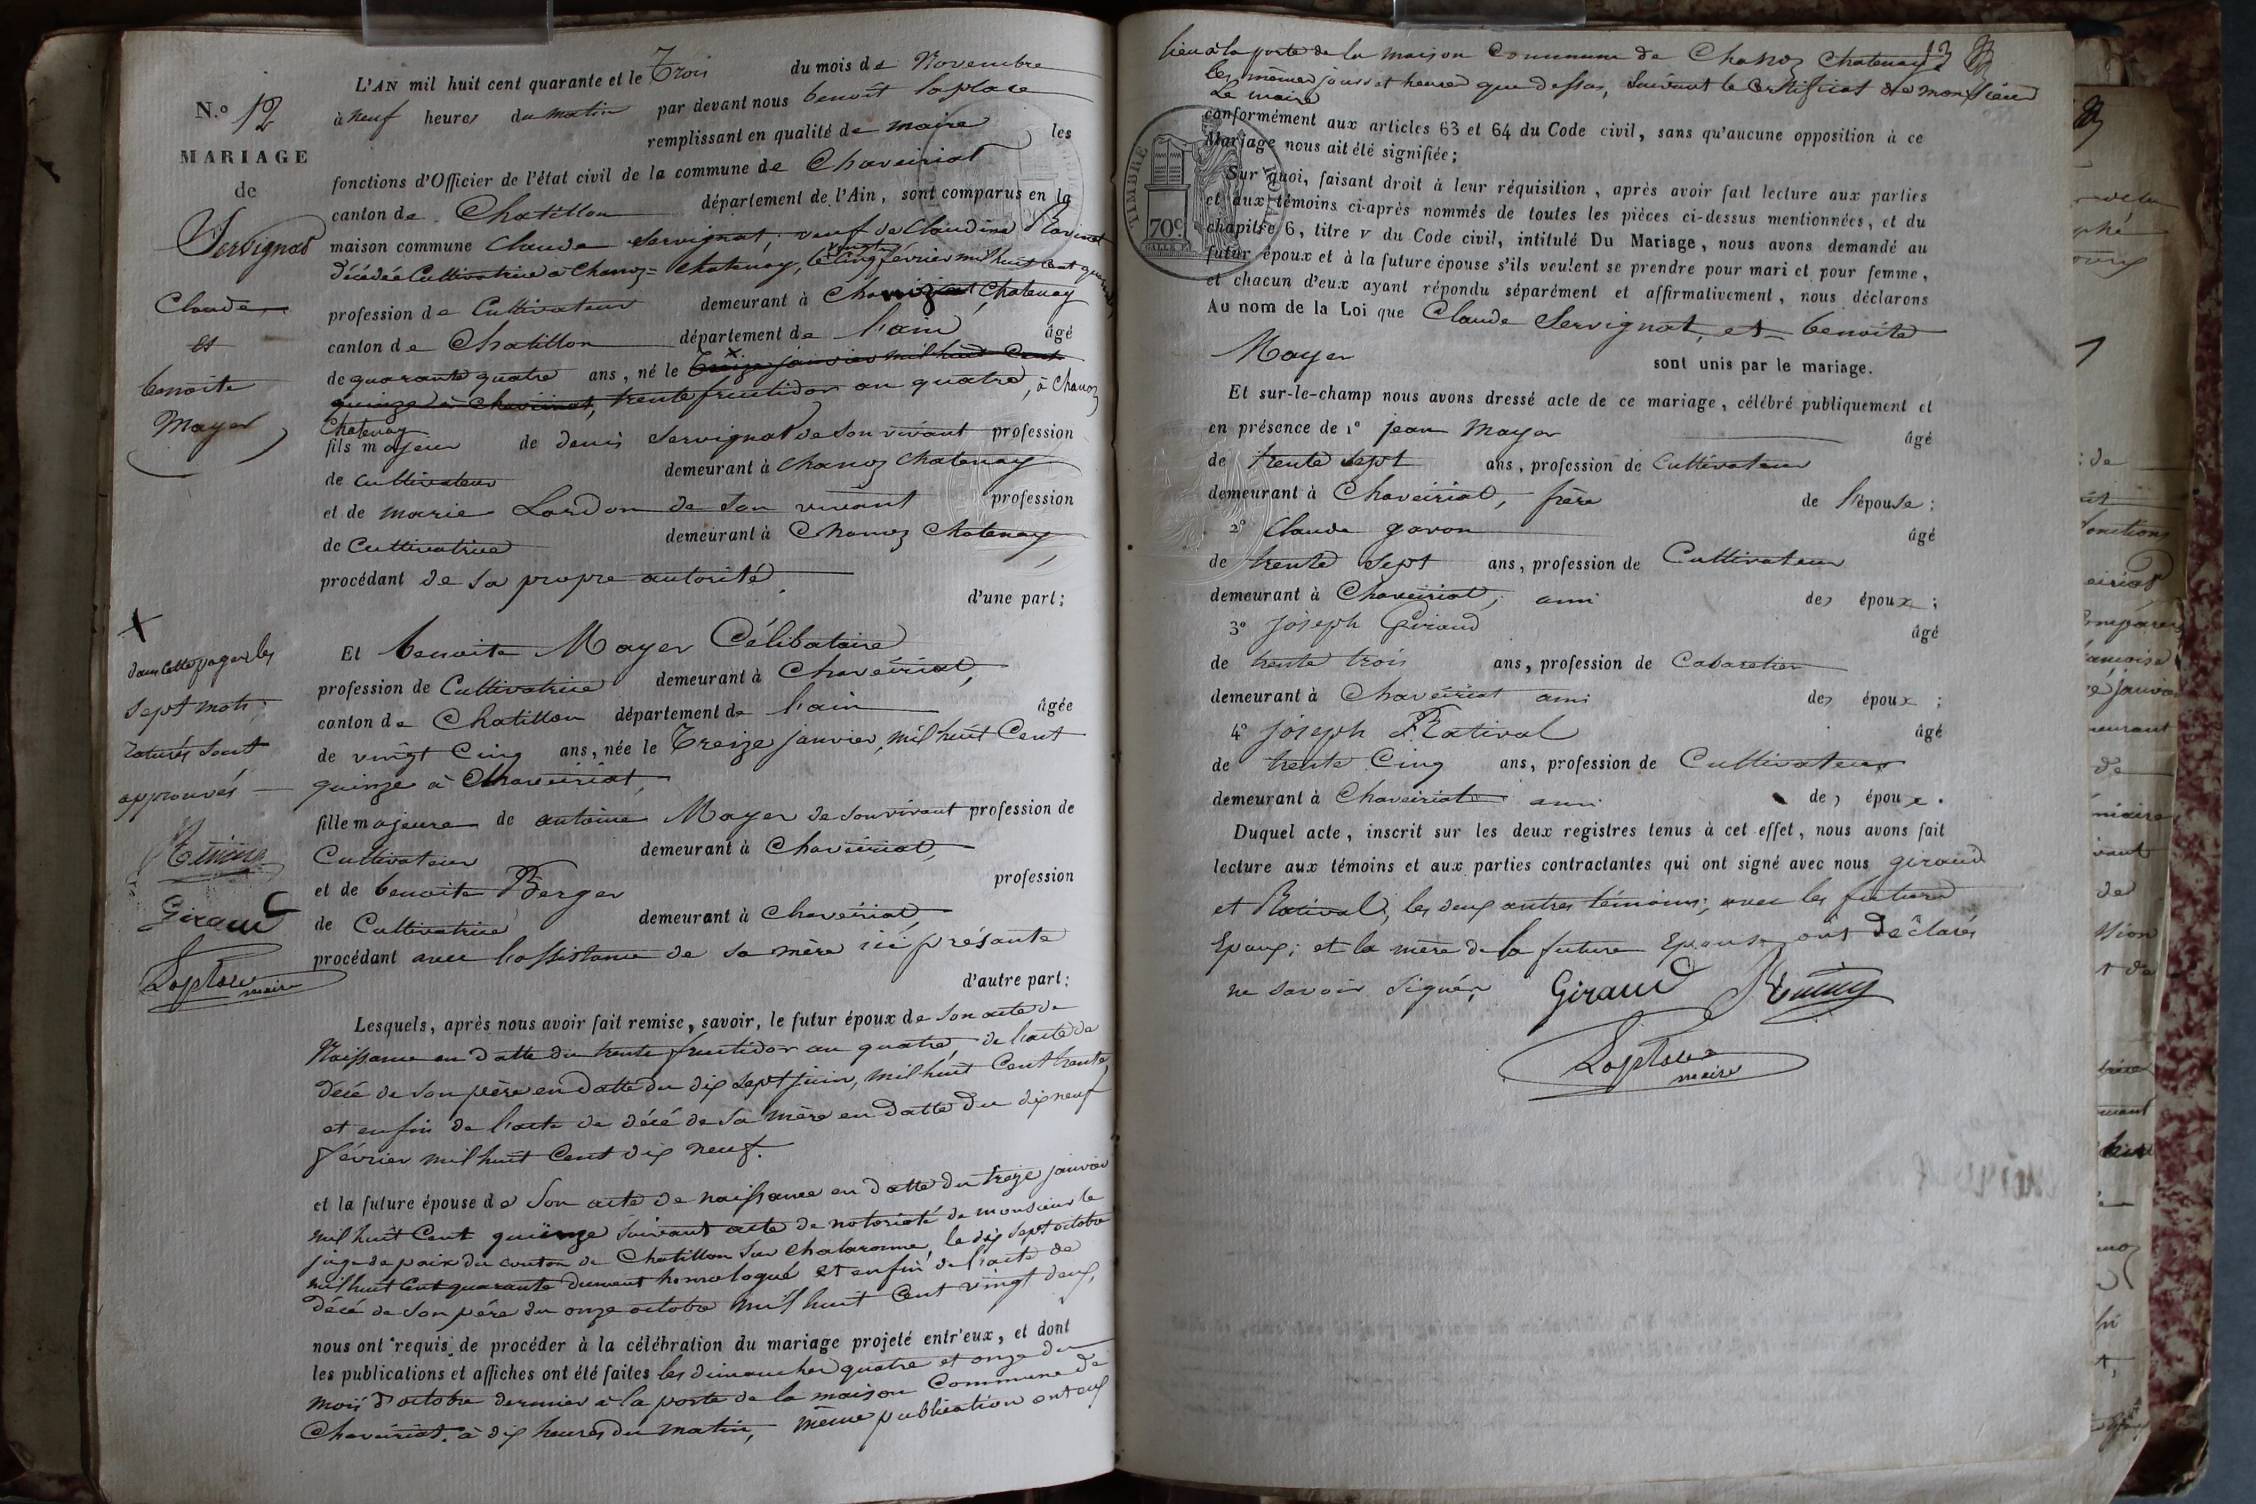 N.o 12
MARIAGE
de
Servignat
Claude
et
benoite
Mayer
L'AN mil huit cent quarante et le Trois du mois de Novembre
à neuf heures du matin par devant nous benoit laplace
remplissant en qualité de maire les
fonctions d'Officier de l'état civil de la commune de Chaveiriat
canton de Chatillon département de l'Ain, sont comparus en la
maison commune Claude Servignat, veuf de Claudine
décédée Cultivatrice à Chanoz-Chatenay, le vingt cinq février mil huit cent quarante
profession de Cultivateur demeurant à Chanoz Chatenay
canton de Chatillon département de l'ain âgé
de quarante quatre ans, né le Treize janvier mil huit Cent
quinze à Chaveiriat, trente fructidor an quatre, à Chanoz
Chatenay
fils majeur de denis Servignat de son vivant profession
de cultivateur demeurant à Chanoz Chatenay
et de marie Lardon de son vivant profession
de Cultivatrice demeurant à Chanoz Chatenay,
procédant de sa propre autorité
d'une part;
Et benoite Mayer Célibataire
profession de Cultivatrice demeurant à Chaveiriat,
canton de Chatillon département de l'ain âgée
de vingt Cinq ans, née le Treize janvier, mil huit Cent
quinze à Chaveiriat,
fille majeure de antoine Mayer de son vivant profession de
Cultivateur demeurant à Chaveiriat,
et de benoite Berger profession
de Cultivatrice demeurant à Chaveiriat,
procédant avec l'assistance de sa mère ici présante
d'autre part;
Lesquels, après nous avoir fait remise, savoir, le futur époux de son acte de
Naissance en datte du trente fructidor an quatre, de l'acte de
décé de son père en datte du dix sept juin, mil huit Cent trente
et enfin de l'acte de décé de sa mère en datte du dix neuf
février mil huit Cent dix neuf.
et la future épouse de Son acte de naissance en datte du treize janvier
mil huit Cent quinze suivant acte de notoriété de monsieur le
juge de paix du canton de Chatillon sur Chalaronne, le dix sept octobre
mil huit Cent quarante dument homologué et enfin de l'acte de
décé de son père du onze octobre mil huit Cent vingt deux,
nous ont requis de procéder à la célébration du mariage projeté entr'eux, et dont
les publications et affiches ont été faites les dimanches quatre et onze du
mois d'octobre dernier à la porte de la maison Commune de
Chaveiriat, à dix heures du matin, même publication ont eux
X
dans cette page les
sept mots
raturés sont
approuvés
Giraud
Laplace
maire
lieu à la porte de la maison Commune de Chanoz Chatenay
les mêmes jours et heures que dessus, suivant le certificat de monsieur
Le maire
conformément aux articles 63 et 64 du Code civil, sans qu'aucune opposition à ce
Mariage nous ait été signifiée;
TIMBRE
70c
Sur quoi, faisant droit à leur réquisition, après avoir fait lecture aux parties
et aux témoins ci-après nommés de toutes les pièces ci-dessus mentionnées, et du
chapitre 6, titre v du Code civil, intitulé Du Mariage, nous avons demandé au
futur époux et à la future épouse s'ils veulent se prendre pour mari et pour femme,
et chacun d'eux ayant répondu séparément et affirmativement, nous déclarons
Au nom de la Loi que Claude Servignat, et benoite
Mayer sont unis par le mariage.
Et sur-le-champ nous avons dressé acte de ce mariage, célébré publiquement et
en présence de 1° jean Mayer âgé
de trente sept ans, profession de Cultivateur
demeurant à Chaveiriat, frère de l'épouse;
2° Claude gavon âgé
de trente sept ans, profession de Cultivateur
demeurant à Chaveiriat, ami des époux;
3° joseph Giraud âgé
de trente trois ans, profession de Cabaretier
demeurant à Chaveiriat ami des époux;
4° joseph Rativel âgé
de trente Cinq ans, profession de Cultivateur
demeurant à Chaveiriat ami des époux.
Duquel acte, inscrit sur les deux registres tenus à cet effet, nous avons fait
lecture aux témoins et aux parties contractantes qui ont signé avec nous giraud
et Rativel, les deux autres témoins, avec les futurs
Epoux; et la mère de la future Epouse, ont déclarés
ne savoir signér,
Giraud
Laplace
maire